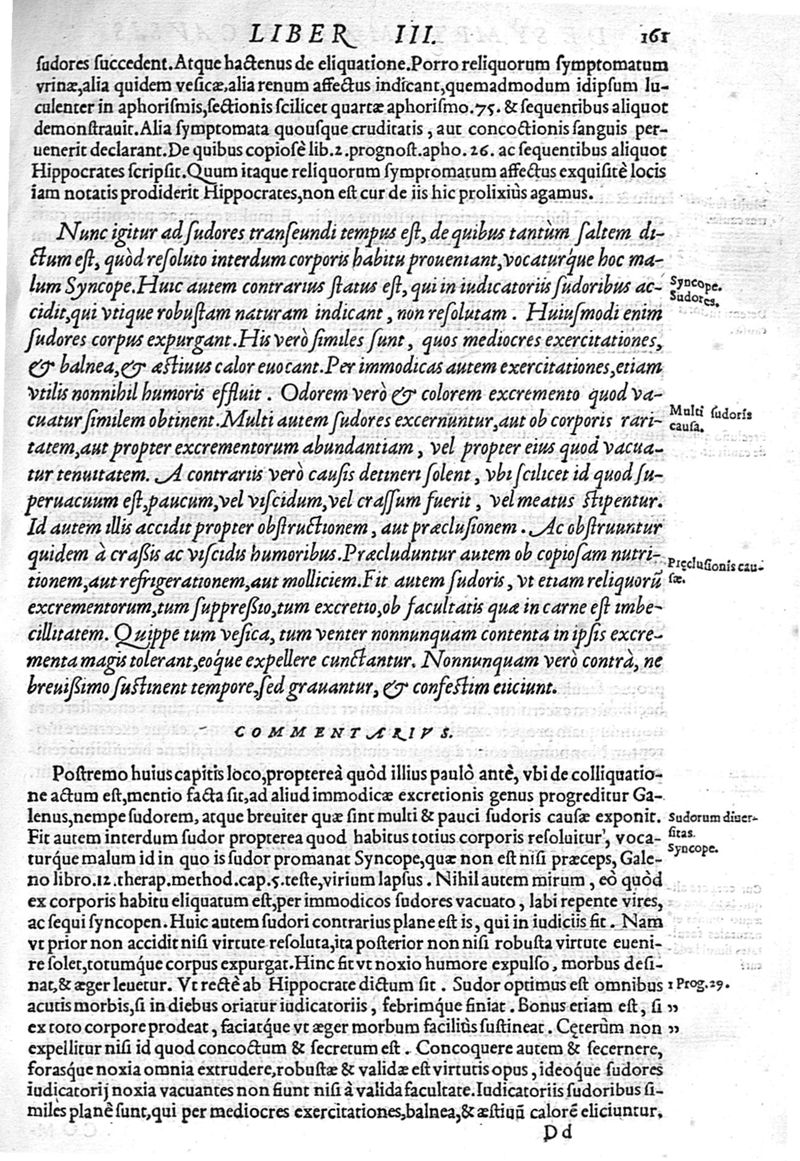 LIBER III.
161
sudores succedent. Atque hactenus de eliquatione. Porro reliquorum symptomatum
vrinæ, alia quidem vesicæ, alia renum affectus indicant, quemadmodum idipsum lu-
culenter in aphorismis, sectionis scilicet quartæ aphorismo. 75. & sequentibus aliquot
demonstrauit. Alia symptomata quousque cruditatis, aut concoctionis sanguis per-
uenerit declarant. De quibus copiosè lib. 2. prognost. apho. 26. ac sequentibus aliquot
Hippocrates scripsit. Quum itaque reliquorum symptomatum affectus exquisitè locis
iam notatis prodiderit Hippocrates, non est cur de iis hic prolixiùs agamus.
Nunc igitur ad sudores transeundi tempus est, de quibus tantùm saltem di-
ctum est, quòd resoluto interdum corporis habitu proueniant, vocaturque hoc ma-
lum Syncope. Huic autem contrarius status est, qui in iudicatoriis sudoribus ac-
Syncope.
cidit, qui vtique robustam naturam indicant, non resolutam. Huiusmodi enim
Sudores.
sudores corpus expurgant. His verò similes sunt, quos mediocres exercitationes,
& balnea, & æstiuus calor euocant. Per immodicas autem exercitationes, etiam
vtilis nonnihil humoris effluit. Odorem verò & colorem excremento quod va-
cuatur similem obtinent. Multi autem sudores excernuntur, aut ob corporis rari-
Multi sudoris
causa.
tatem, aut propter excrementorum abundantiam, vel propter eius quod vacua-
tur tenuitatem. A contrariis verò causis detineri solent, vbi scilicet id quod su-
peruacuum est, paucum, vel viscidum, vel crassum fuerit, vel meatus stipentur.
Id autem illis accidit propter obstructionem, aut præclusionem. Ac obstruuntur
quidem à craßis ac viscidis humoribus. Præcluduntur autem ob copiosam nutri-
Pręclusionis cau-
tionem, aut refrigerationem, aut molliciem. Fit autem sudoris, vt etiam reliquorũ
sæ.
excrementorum, tum suppreßio, tum excretio, ob facultatis quæ in carne est imbe-
cillitatem. Quippe tum vesica, tum venter nonnunquam contenta in ipsis excre-
menta magis tolerant, eóque expellere cunctantur. Nonnunquam verò contrà, ne
breuißimo sustinent tempore, sed grauantur, & confestim eiiciunt.
COMMENTARIVS.
Postremo huius capitis loco, propterea quòd illius paulò antè, vbi de colliquatio-
ne actum est, mentio facta sit, ad aliud immodicæ excretionis genus progreditur Ga-
lenus, nempe sudorem, atque breuiter quæ sint multi & pauci sudoris causæ exponit.
Sudorum diuer-
sitas.
Fit autem interdum sudor propterea quod habitus totius corporis resoluitur, voca-
Syncope.
turque malum id in quo is sudor promanat Syncope, quæ non est nisi præceps, Gale-
no libro. 12. therap. method. cap. 5. teste, virium lapsus. Nihil autem mirum, eò quòd
ex corporis habitu eliquatum est, per immodicos sudores vacuato, labi repente vires,
ac sequi syncopen. Huic autem sudori contrarius plane est is, qui in iudiciis fit. Nam
vt prior non accidit nisi virtute resoluta, ita posterior non nisi robusta virtute eueni-
re solet, totumque corpus expurgat. Hinc fit vt noxio humore expulso, morbus desi-
nat, & æger leuetur. Vt rectè ab Hippocrate dictum sit. Sudor optimus est omnibus
1 Prog. 29.
acutis morbis, si in diebus oriatur iudicatoriis, febrimque finiat. Bonus etiam est, si
„
ex toto corpore prodeat, faciatque vt æger morbum faciliùs sustineat. Cęterùm non
„
expellitur nisi id quod concoctum & secretum est. Concoquere autem & secernere,
forasque noxia omnia extrudere, robustæ & validæ est virtutis opus, ideoque sudores
iudicatorij noxia vacuantes non fiunt nisi à valida facultate. Iudicatoriis sudoribus si-
miles planè sunt, qui per mediocres exercitationes, balnea, & æstiuũ calorẽ eliciuntur.
Dd